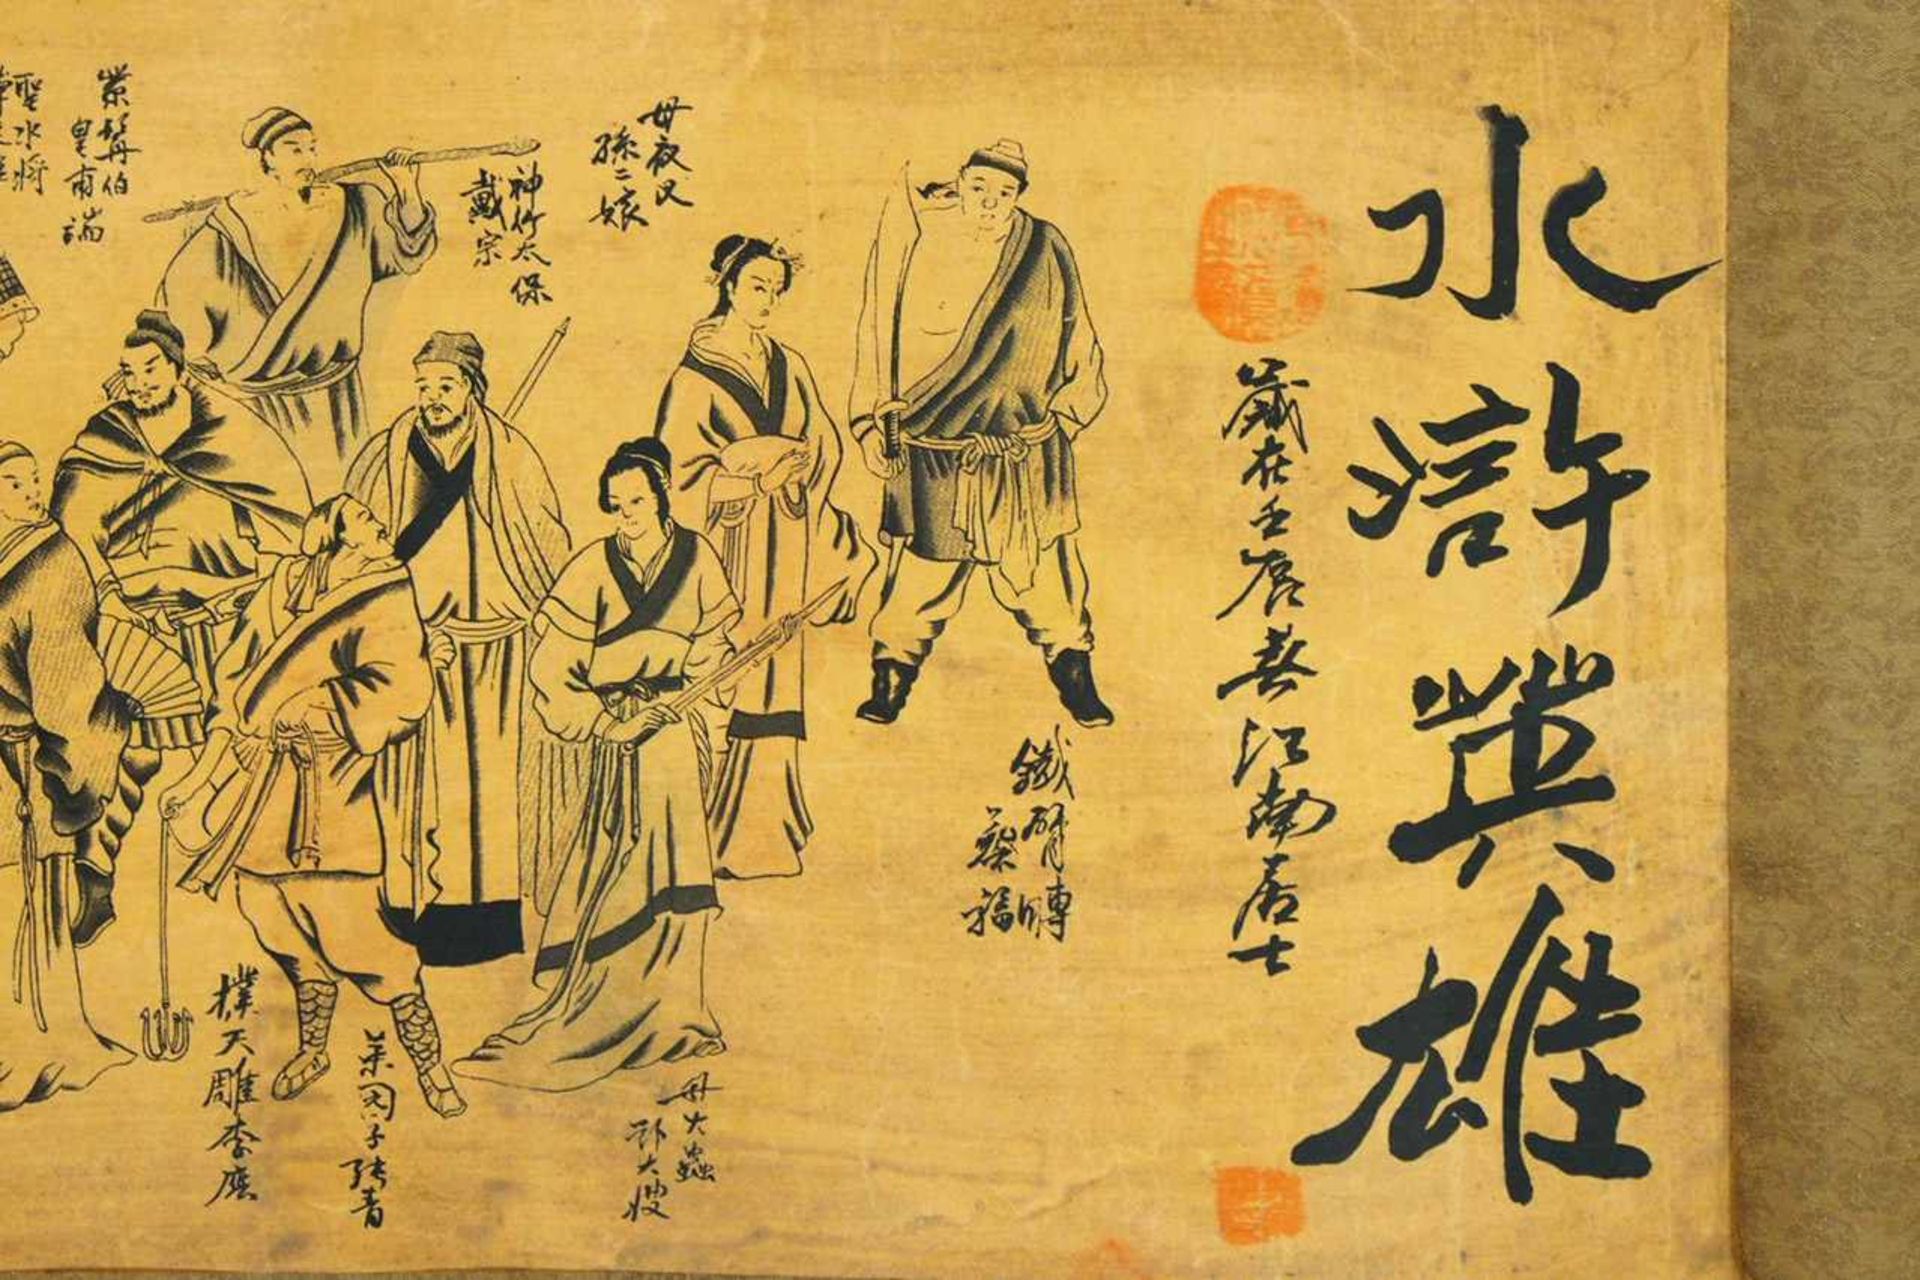 水滸英雄
歲在壬辰春江南居士
鐵臂膊
蔡福
母夜叉
孫二娘
母大蟲
郭大嫂
神行太保
戴宗
菜園子張青
撲天雕李應
紫髯伯
皇甫端
聖水將